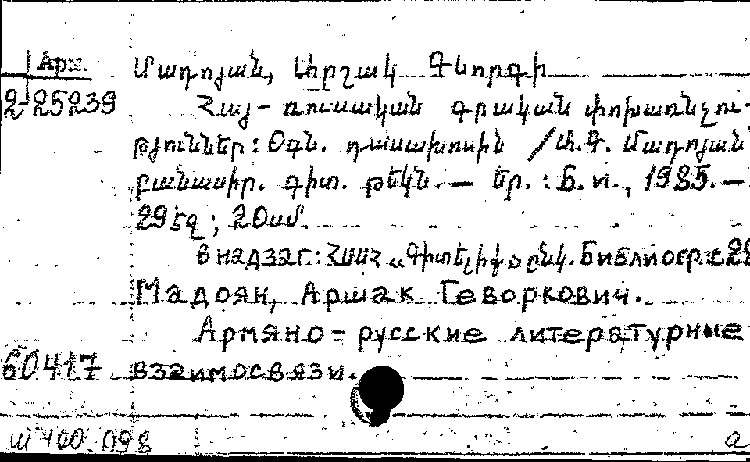 Арм. Մադոյան, Արշակ Գևորգի
2-25239 Հայ-ռուսական գրական փոխառնչու-
թյուններ: Օգն. դասախոսին /Ա.Գ. Մադոյան
բանասիր. գիտ. թեկն. — Եր.: Б.и., 1985. —
29 էջ; 20սմ.
В надзаг.: ՀՍՍՀ «Գիտելիք» ընկ. Библиогр.: с. 29
Мадоян, Аршак Геворкович.
Армяно-русские литературные
60417 взаимосвязи.
ш 400.098 а